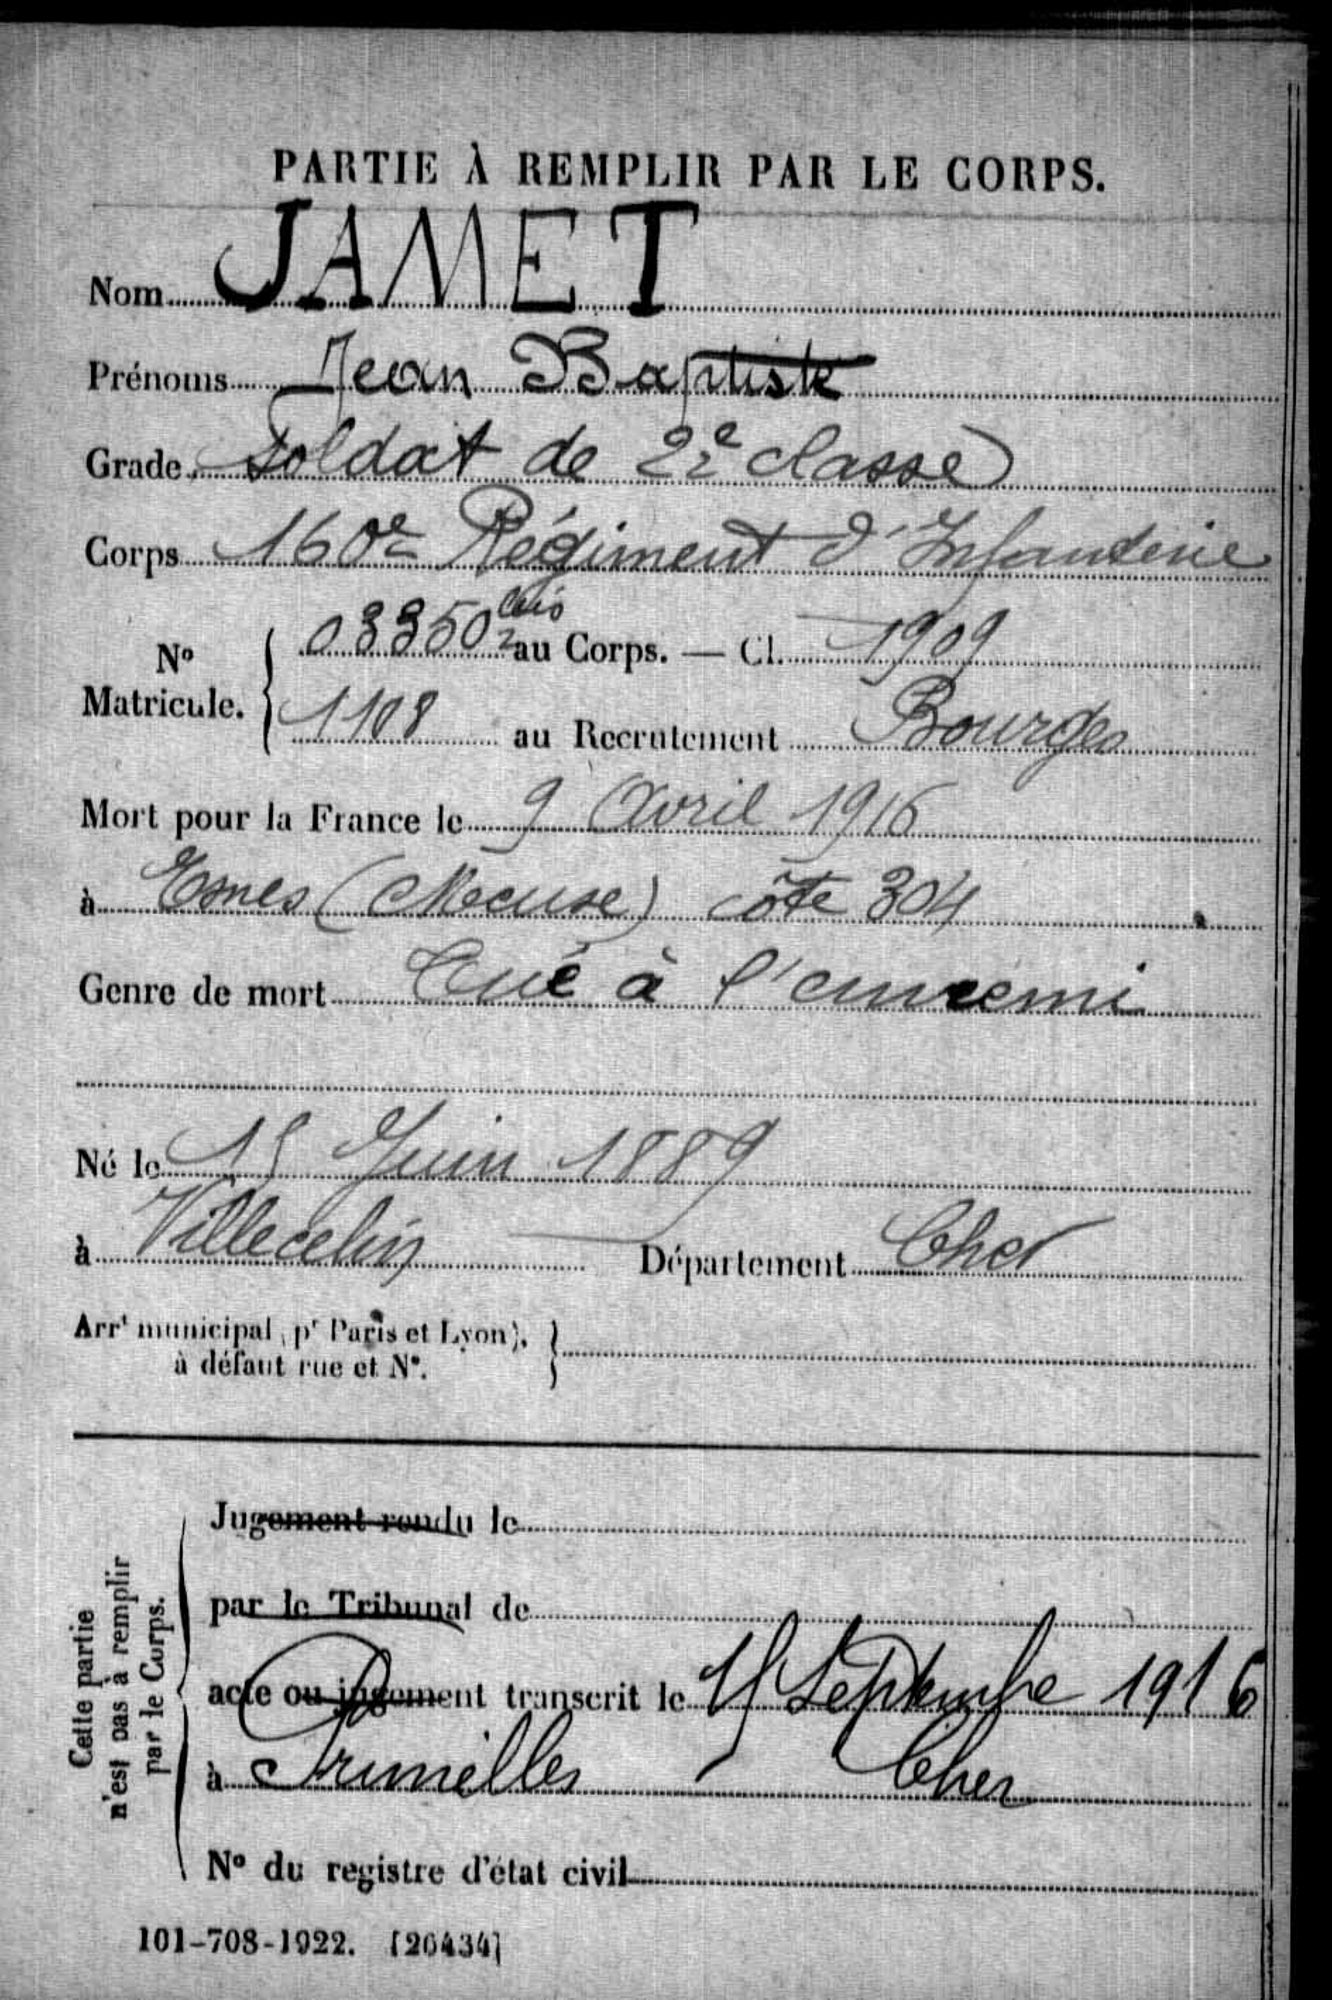 PARTIE À REMPLIR PAR LE CORPS.
Nom JAMET
Prénoms Jean Baptiste
Grade Soldat de 2e classe
Corps 160e Régiment d'Infanterie
N° Matricule. { 03350 bis au Corps. — Cl. 1909
1108 au Recrutement Bourges
Mort pour la France le 9 Avril 1916
à Esnes (Meuse) côte 304
Genre de mort Tué à l'ennemi
Né le 15 Juin 1889
à Villecelin Département Cher
Arrt municipal (pr Paris et Lyon), à défaut rue et N°.
Jugement rendu le
par le Tribunal de
acte ou jugement transcrit le 15 Septembre 1916
à Primelles Cher
N° du registre d'état civil
Cette partie n'est pas à remplir par le Corps.
101-708-1922. [26434]